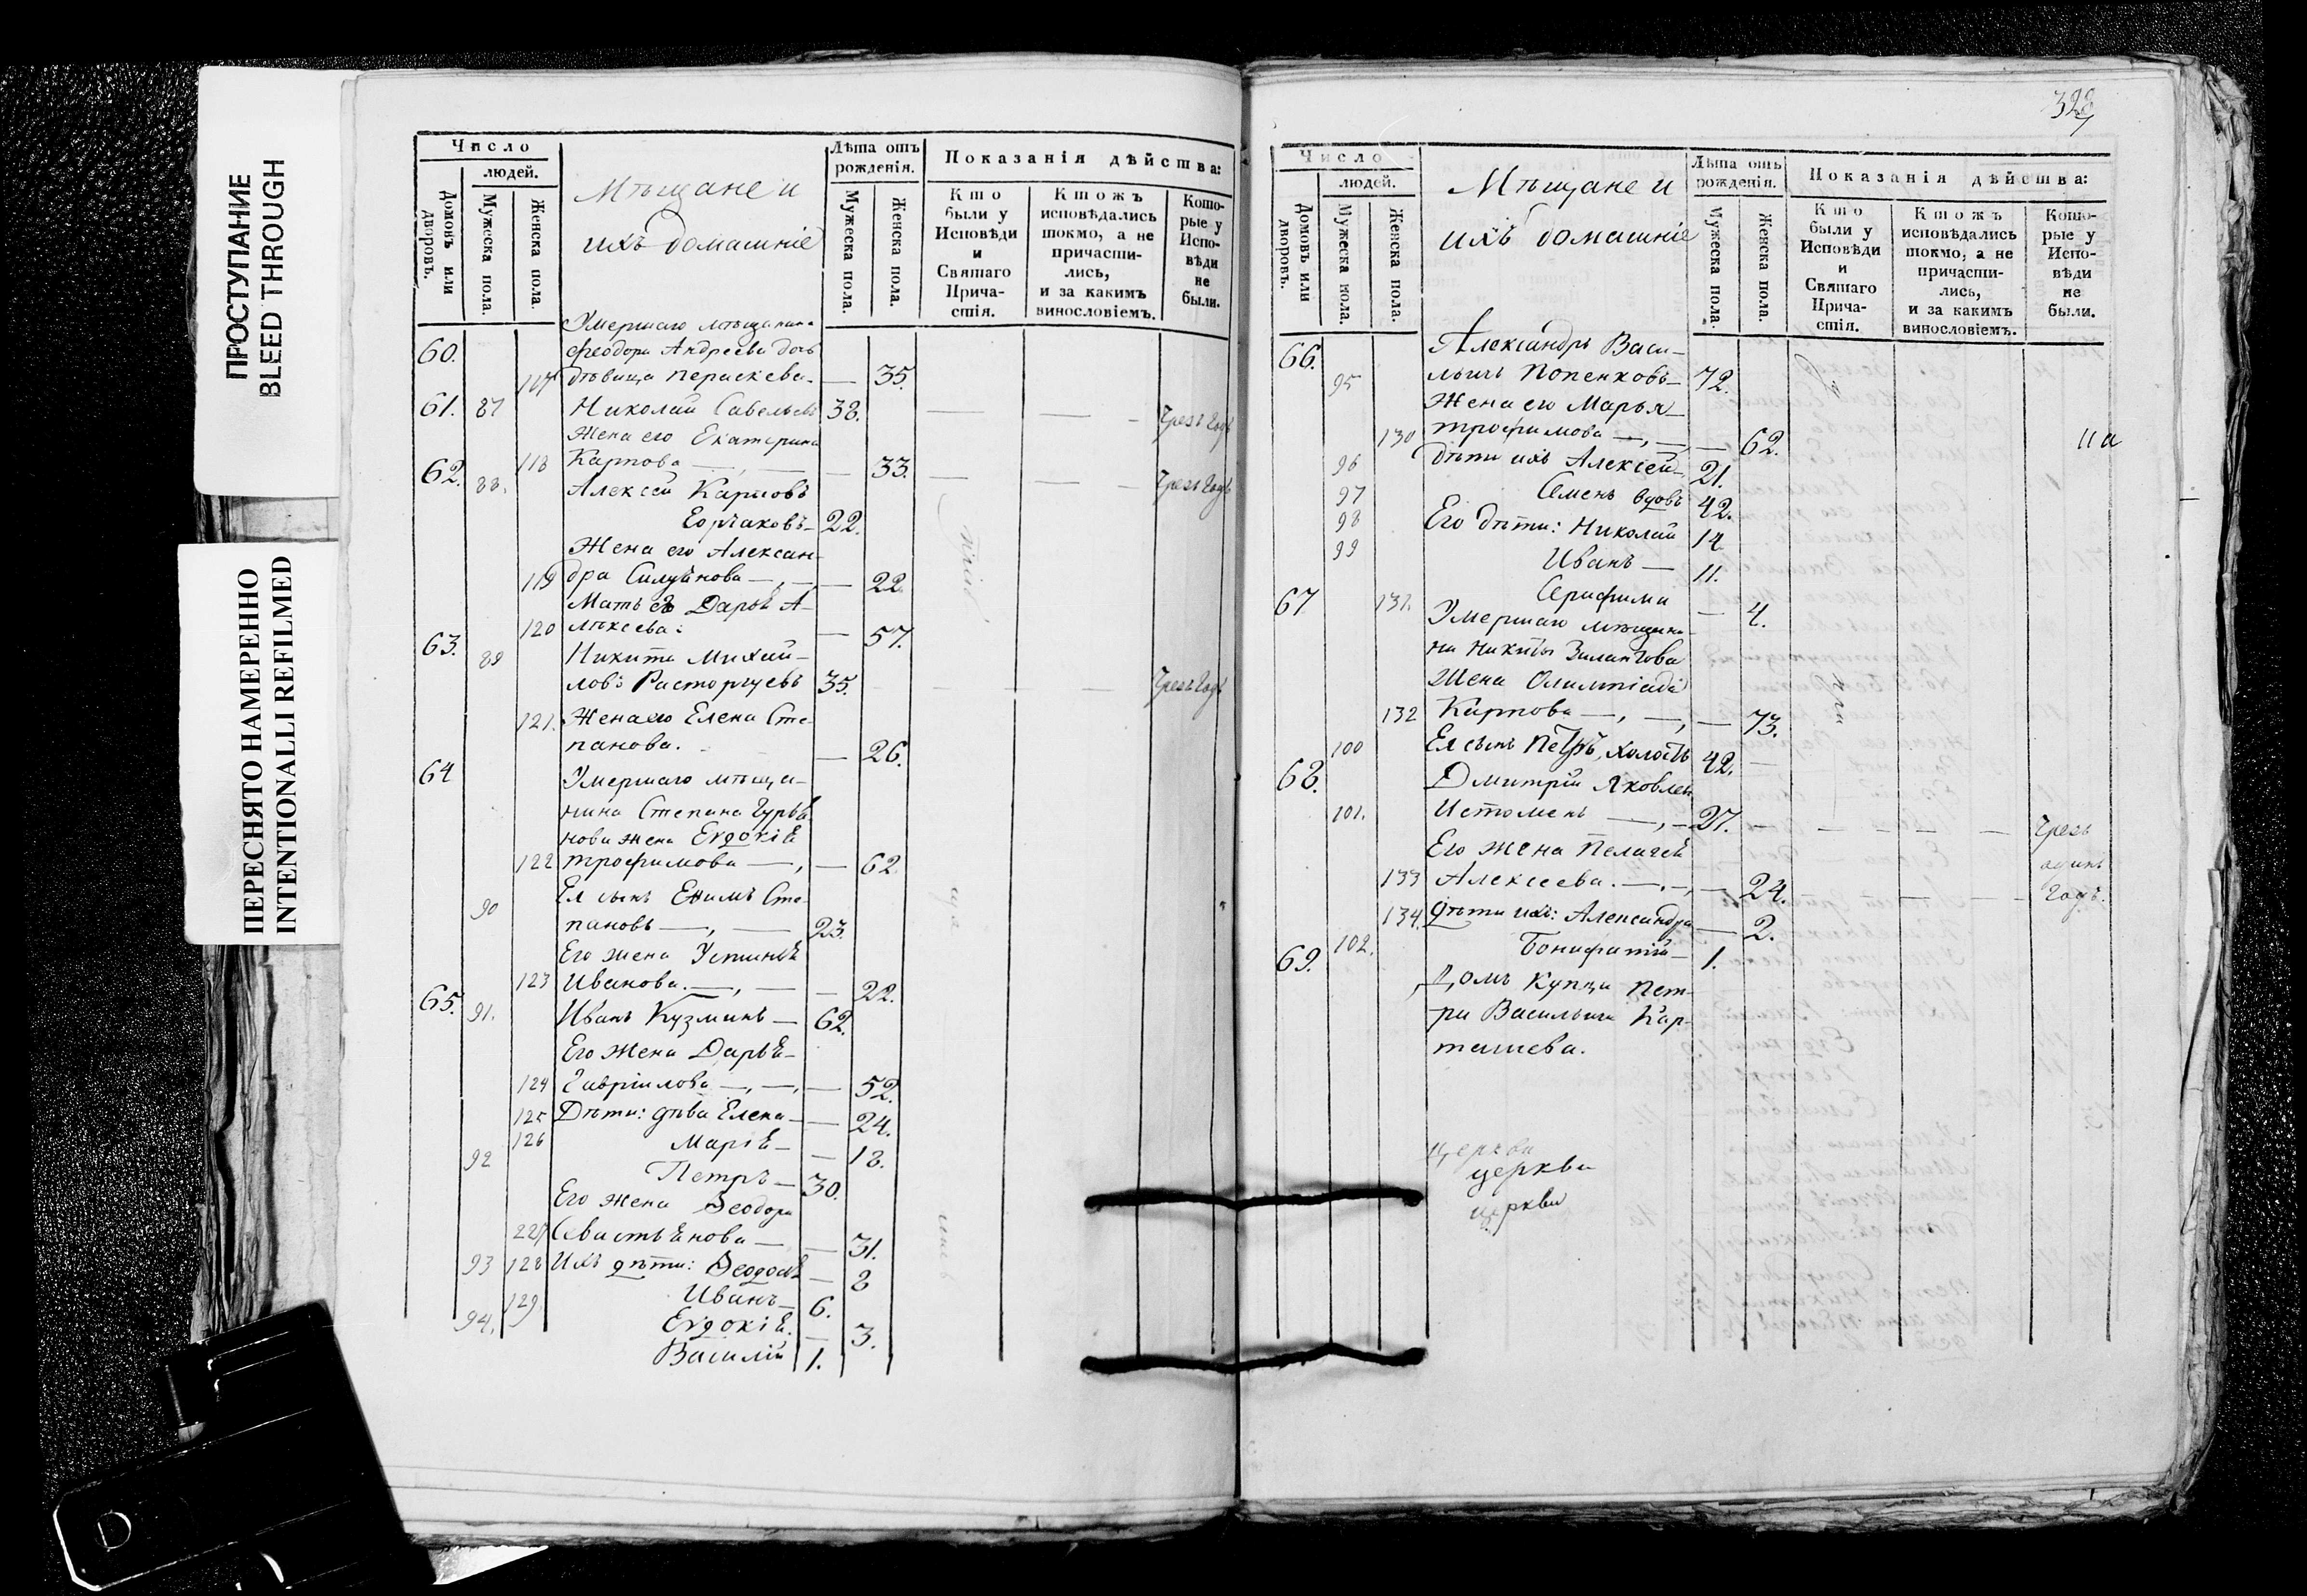 ПРОСТУПАНИЕ
BLEED THROUGH
ПЕРЕСНЯТО НАМЕРЕННО
INTENTIONALLI REFILMED
Число
людей.
Домовъ или дворовъ.
Мужеска пола.
Женска пола.
Мѣщане и
ихъ домашніе
Лѣта отъ
рожденія.
Мужеска пола.
Женска пола.
Показанія дѣйства:
Кто
были у
Исповѣди
и
Святаго
Прича-
стія.
Ктожъ
исповѣдались
токмо, а не
причасти-
лись,
и за какимъ
винословіемъ.
Кото-
рые у
Испо-
вѣди
не
были.
Умершаго мѣщанина
60. Феодора Андреева дочь
117 дѣвица Параскева — 35.
61. 87 Николай Савельевъ 38. Чрезъ годъ
Жена его Екатерина
118 Карпова — 33.
62. 88. Алексей Карповъ Чрезъ годъ
22.
Жена его Алексан-
119 дра Силуянова — 22.
Мать его Дарья А-
120 лѣксева: — 57.
63. 89 Никита Михай-
ловъ Расторгуевъ 35. Чрезъ годъ
121. Жена его Елена Сте-
панова. — 26.
64 Умершаго мѣща-
нина Степана
нова жена Евдокія
122 Трофимова — 62.
90 Ея сынъ Сте-
пановъ — 23.
Его жена Устинья
123 Иванова. — 22.
65. 91. Иванъ Кузминъ — 62.
Его жена Дарья
124 Гавріилова — 52.
125 Дѣти: дѣва Елена — 24.
126 Марія — 18.
92 Петръ — 30.
Его жена Ѳеодора
227 Севастьянова — 31.
93 128 Ихъ дѣти: — 8
Иванъ 6.
129 Евдокія. — 3.
94. Василій 1.
328
Число
людей.
Домовъ или дворовъ.
Мужеска пола.
Женска пола.
Мѣщане и
ихъ домашніе
Лѣта отъ
рожденія.
Мужеска пола.
Женска пола.
Показанія дѣйства:
Кто
были у
Исповѣди
и
Святаго
Прича-
стія.
Ктожъ
исповѣдались
токмо, а не
причасти-
лись,
и за какимъ
винословіемъ.
Кото-
рые у
Испо-
вѣди
не
были.
66. Александръ Васи-
95 льичъ Попенковъ 72.
Жена его Марья
130 Трофимова — 62.
96 Дѣти ихъ Алексей 21.
97 Семенъ вдовъ 42.
98 Его дѣти: Николай 14
99 Иванъ — 11.
131. Серафима — 4.
67 Умершаго мѣщани-
на Никиты
Жена Олимпіада
132 Карпова — 73.
100 Ея сынъ Петръ, холостъ 42.
68. Дмитрій Яковлев
101. Истоминъ — 27. Чрезъ
Его жена Пелагея одинъ
133 Алексеева. — 24. годъ.
134. Дѣти ихъ: Александра — 2.
102. Бонифатій 1.
69. Домъ Купца Пет-
ра Васильича Кар-
ташева.
церкви
церкви
церкви